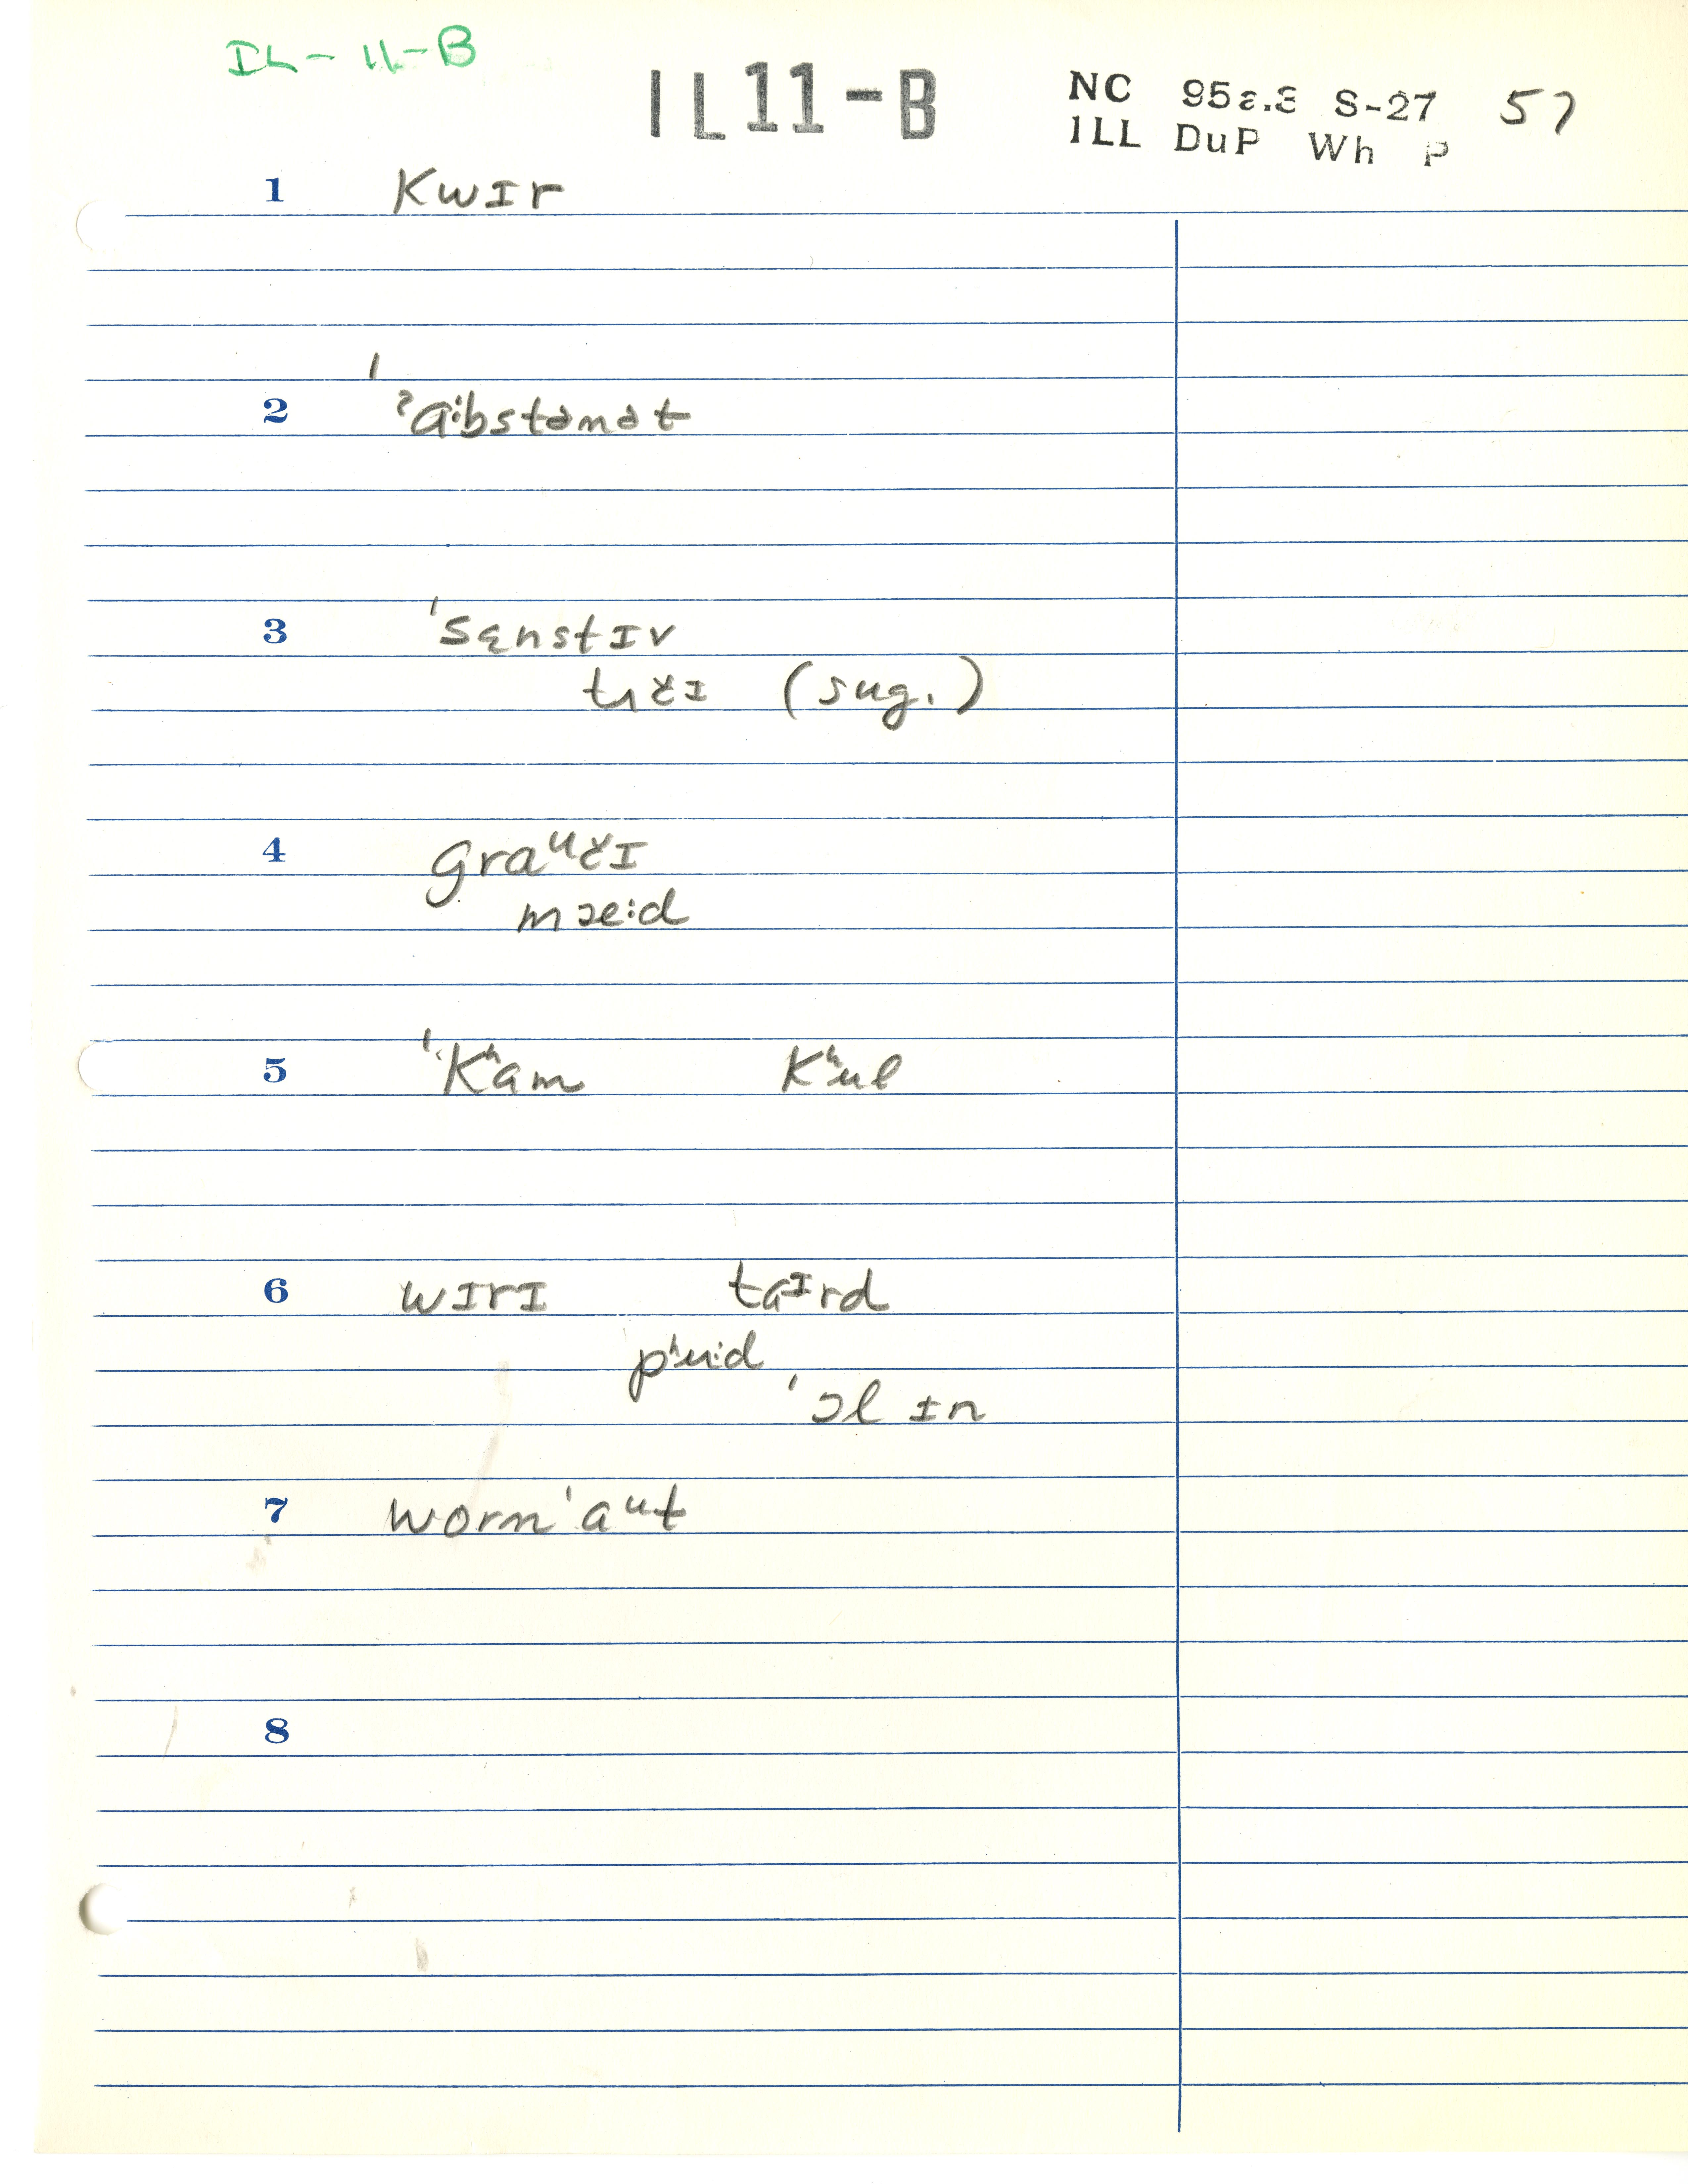 IL-11-B
IL11-B
NC 95a.3 S-27 57
ILL DuP Wh P
1 kwɪr
2 ˈˀɑ·bstənət
3 ˈsɛnstɪv
(sug.)
4
mæ:d
5 ˈkʰam kʰul
6 wɪrɪ taᶦrd
pʰu:d
ˈɔl ɪn
7 wornˈaᵘt
8